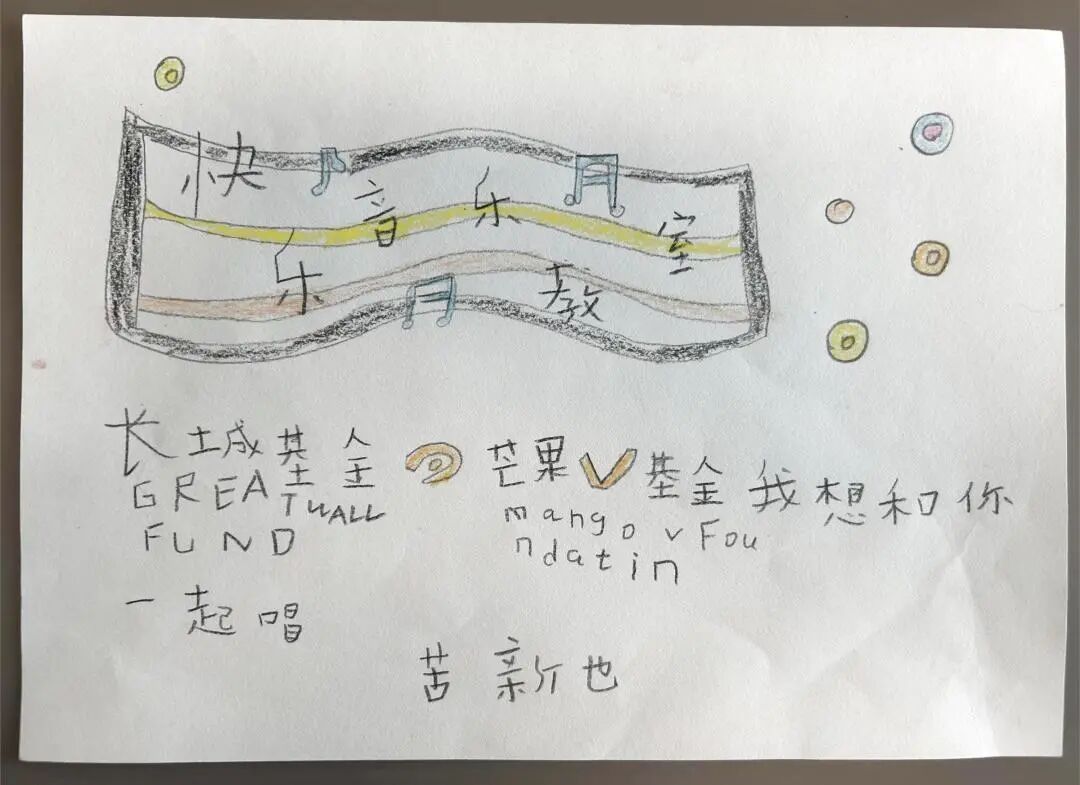 快乐音乐教室
长城基金 芒果V基金我想和你
GREATWALL mango v Fou
FUND ndatin
一起唱
苦新也